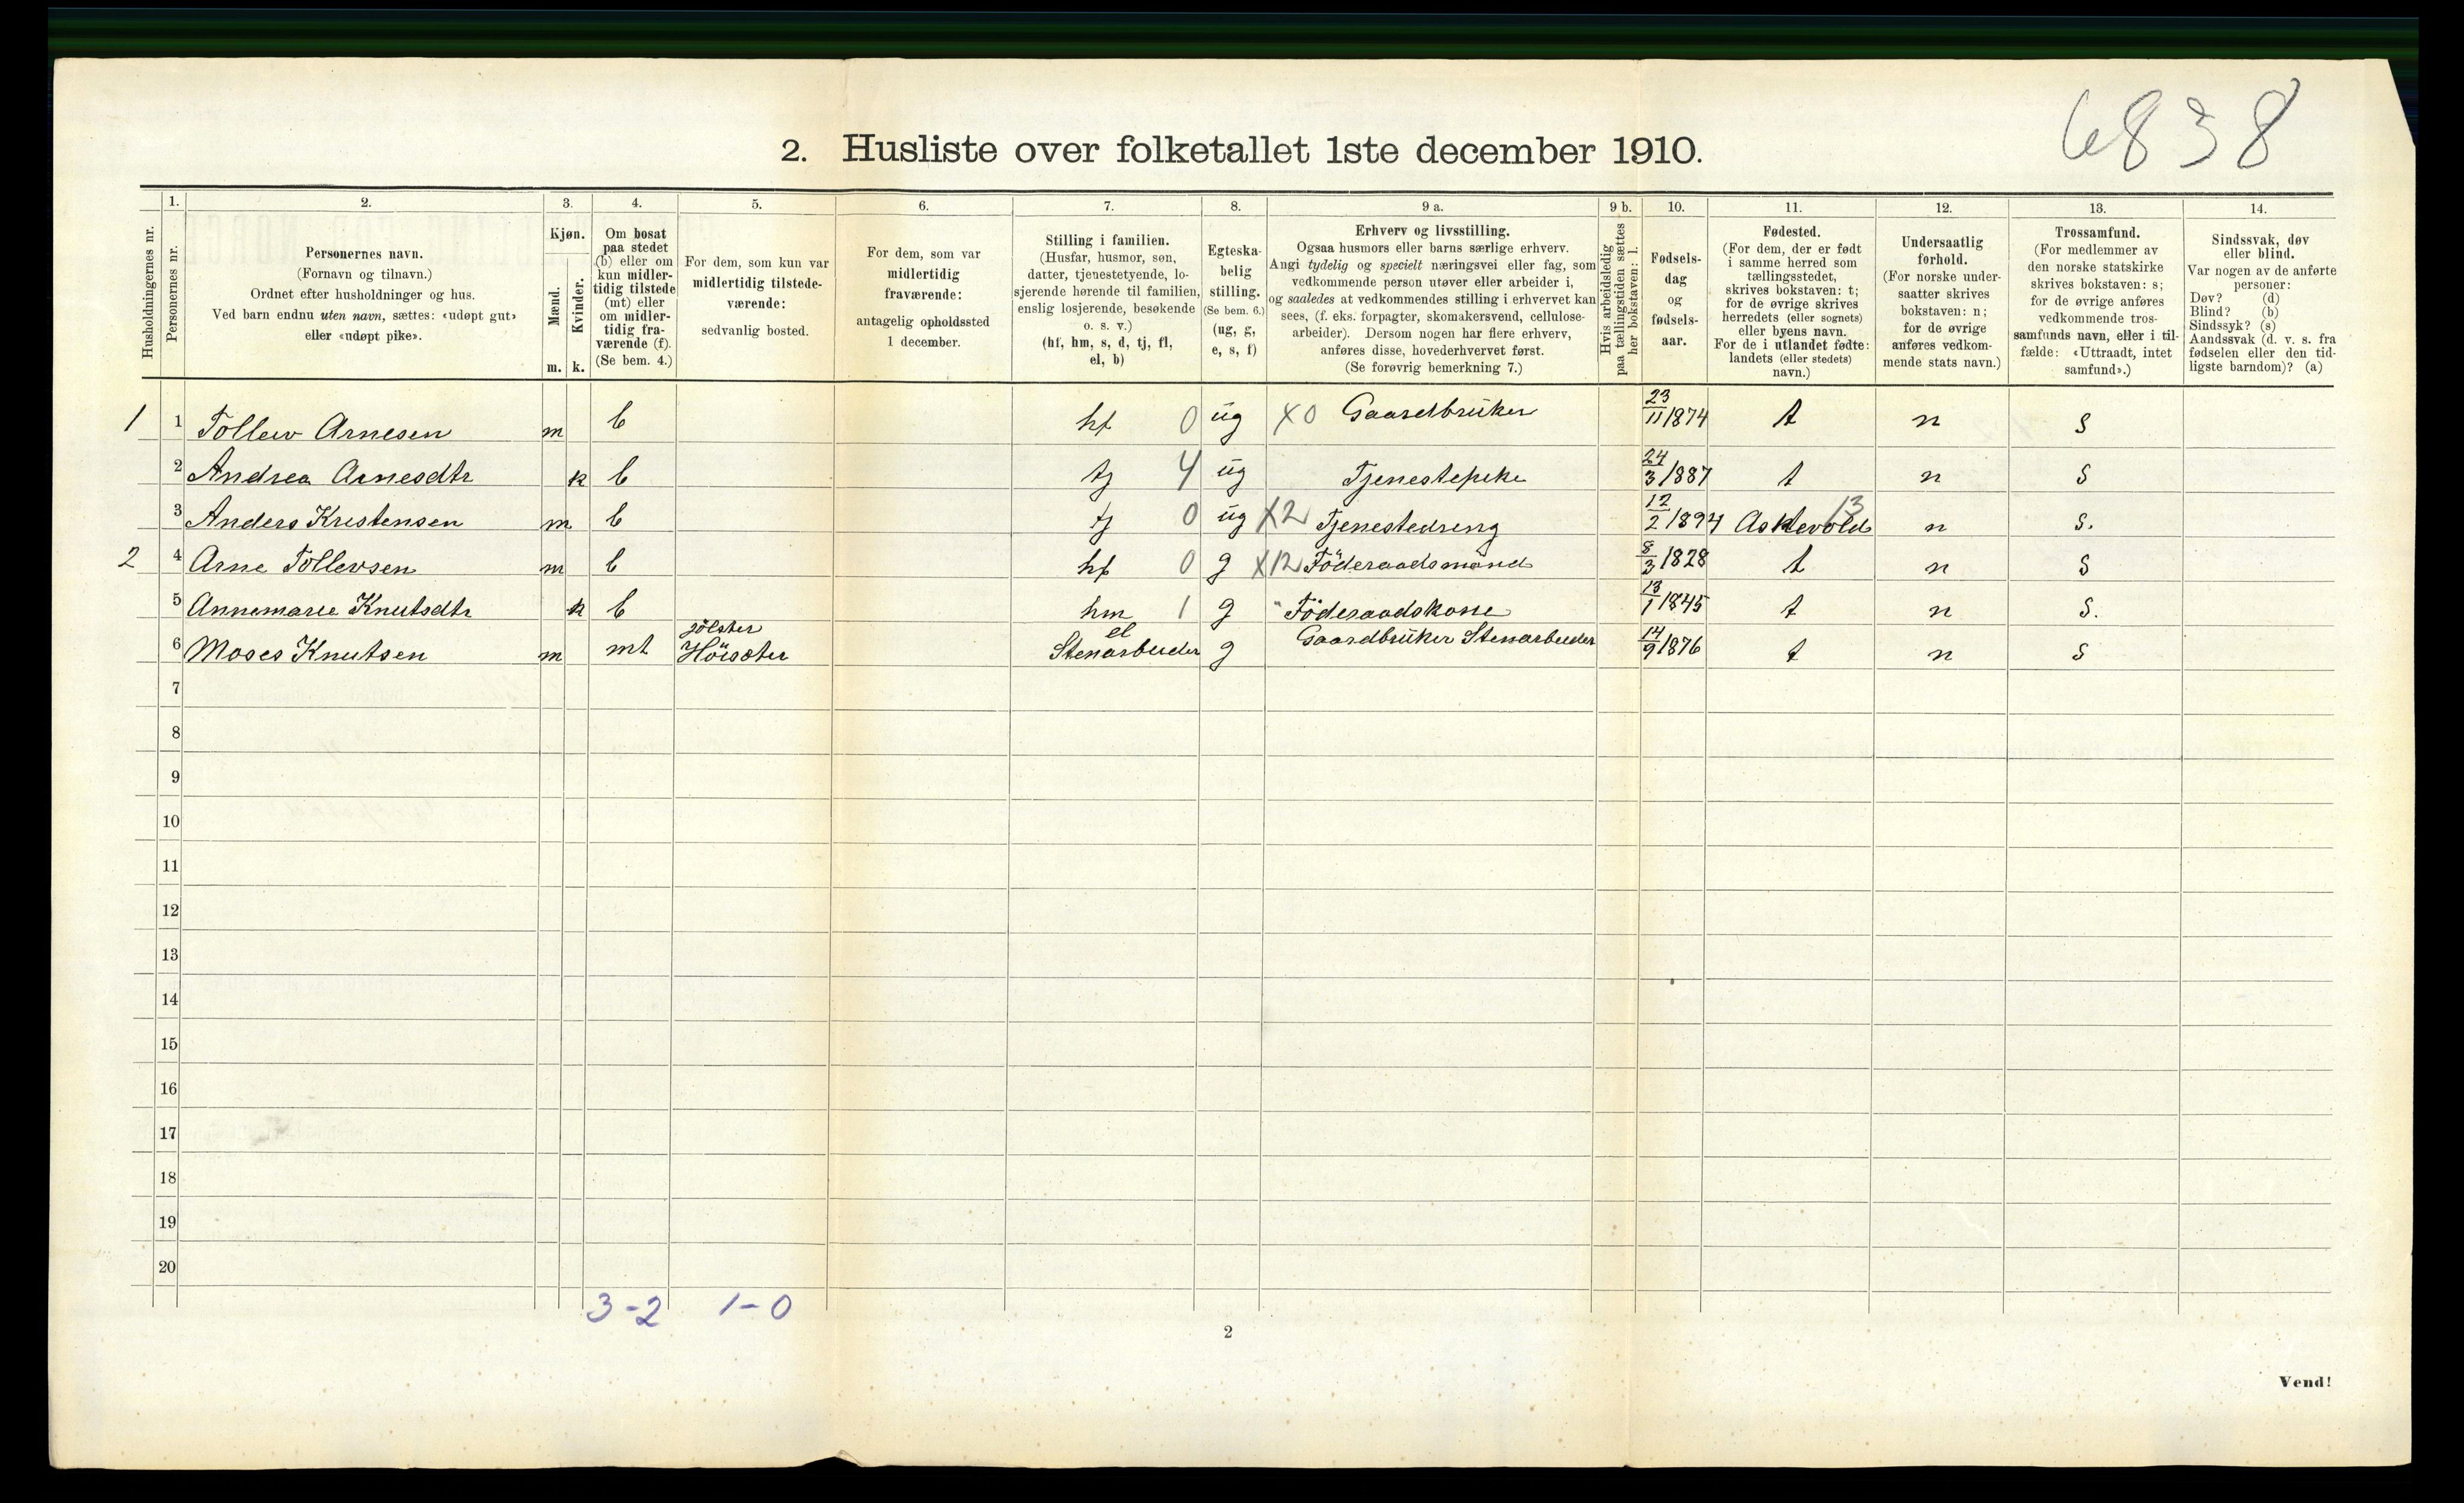 6838
2. Husliste over folketallet 1ste december 1910.
Husholdningernes nr.
1.
Personernes nr.
2.
Personernes navn.
(Fornavn og tilnavn.)
Ordnet efter husholdninger og hus.
Ved barn endnu uten navn, sættes: «udøpt gut»
eller «udøpt pike».
3.
Kjøn.
Mænd.
Kvinder.
m. k.
4.
Om bosat
paa stedet
(b) eller om
kun midler-
tidig tilstede
(mt) eller
om midler-
tidig fra-
værende (f).
(Se bem. 4.)
5.
For dem, som kun var
midlertidig tilstede-
værende:
sedvanlig bosted.
6.
For dem, som var
midlertidig
fraværende:
antagelig opholdssted
1 december.
7.
Stilling i familien.
(Husfar, husmor, søn,
datter, tjenestetyende, lo-
sjerende hørende til familien,
enslig losjerende, besøkende
o. s. v.)
(hf, hm, s, d, tj, fl,
el, b)
8.
Egteska-
belig
stilling.
(Se bem. 6.)
(ug, g,
e, s, f)
9 a.
Erhverv og livsstilling.
Ogsaa husmors eller barns særlige erhverv.
Angi tydelig og specielt næringsvei eller fag, som
vedkommende person utøver eller arbeider i,
og saaledes at vedkommendes stilling i erhvervet kan
sees, (f. eks. forpagter, skomakersvend, cellulose-
arbeider). Dersom nogen har flere erhverv,
anføres disse, hovederhvervet først.
(Se forøvrig bemerkning 7.)
9 b.
Hvis arbeidsledig
paa tællingstiden sættes
her bokstaven: l.
10.
Fødsels-
dag
og
fødsels-
aar.
11.
Fødested.
(For dem, der er født
i samme herred som
tællingsstedet,
skrives bokstaven: t;
for de øvrige skrives
herredets (eller sognets)
eller byens navn.
For de i utlandet fødte:
landets (eller stedets)
navn.)
12.
Undersaatlig
forhold.
(For norske under-
saatter skrives
bokstaven: n;
for de øvrige
anføres vedkom-
mende stats navn.)
13.
Trossamfund.
(For medlemmer av
den norske statskirke
skrives bokstaven: s;
for de øvrige anføres
vedkommende tros-
samfunds navn, eller i til-
fælde: «Uttraadt, intet
samfund».)
14.
Sindssvak, døv
eller blind.
Var nogen av de anførte
personer:
Døv? (d)
Blind? (b)
Sindssyk? (s)
Aandssvak (d. v. s. fra
fødselen eller den tid-
ligste barndom)? (a)
1 1 Tollew Arnesen m b hf 0 ug X0 Gaardbruker 23/11 1874 t n s
2 Andrea Arnesdtr k b tj 4 ug Tjenestepike 24/3 1887 t n s
3 Anders Kristensen m b tj 0 ug X2 Tjenestedreng 12/2 1894 Askevold 13 n s.
2 4 Arne Tollevsen m b hf 0 g X12 Föderaadsmand 8/3 1828 t n s
5 Annemarie Knutsdtr k b hm 1 g " Föderaadskone 13/1 1845 t n s.
6 Moses Knutsen m mt Jölster Höisæter el Stenarbeider g Gaardbruker Stenarbeider 14/9 1876 t n s
7
8
9
10
11
12
13
14
15
16
17
18
19
20
3-2 1-0
2
Vend!